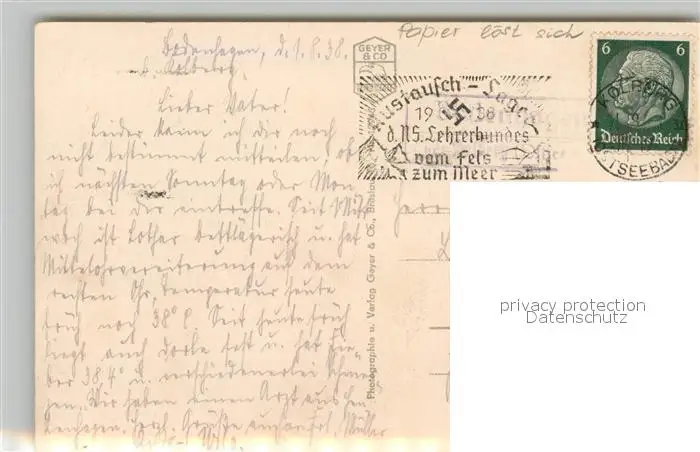 Papier löst sich
Bodenhagen, d. 1.8.38.
b. Kolberg.
Lieber Vater!
Leider kann ich dir noch
nicht bestimmt mitteilen, ob
ich nächsten Sonntag oder Mon
tag bei dir eintreffe. Seit Mitt
woch ist Lothar bettlägerisch u. hat
Mittelohrvereiterung auf dem
rechten Ohr, Temperatur heute
früh noch 38°. Seit heute früh
liegt auch fest u. hat Fie-
ber 38.4° u. verschiedenerlei Schmer
zen. Wir haben einen Arzt aus Hen
kenhagen. Herzl. Grüße
GEYER
& CO
Austausch-Lager
1938
d. NS. Lehrerbundes
vom Fels
zum Meer
6 6
Deutsches Reich
KOLBERG
OSTSEEBAD
Photographie u. Verlag Geyer & Co., Breslau
privacy protection
Datenschutz